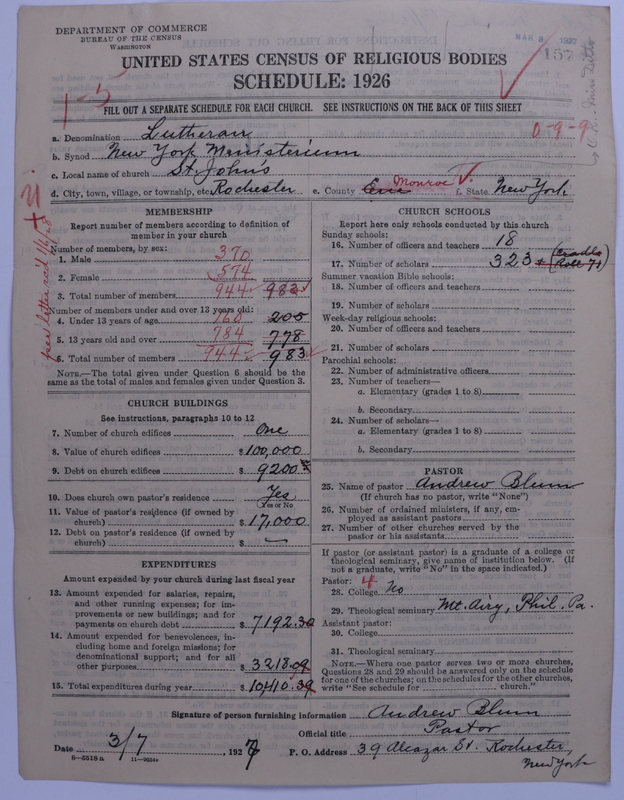 DEPARTMENT OF COMMERCE
BUREAU OF THE CENSUS
WASHINGTON
157
UNITED STATES CENSUS OF RELIGIOUS BODIES
SCHEDULE: 1926
1-5
FILL OUT A SEPARATE SCHEDULE FOR EACH CHURCH. SEE INSTRUCTIONS ON THE BACK OF THIS SHEET
a. Denomination Lutheran 0-9-9
b. Synod New York Ministerium
c. Local name of church St. John's
d. City, town, village, or township, etc. Rochester e. County Erie Monroe f. State New York
MEMBERSHIP
Report number of members according to definition of
member in your church
Number of members, by sex:
1. Male 370
2. Female 574
3. Total number of members 944 983
Number of members under and over 13 years old:
4. Under 13 years of age 160 205
5. 13 years old and over 784 778
6. Total number of members 944 983
NOTE.—The total given under Question 6 should be
same as the total of males and females given under Question 3.
CHURCH BUILDINGS
See instructions, paragraphs 10 to 12
7. Number of church edifices One
8. Value of church edifices $100,000
9. Debt on church edifices $9200
10. Does church own pastor's residence Yes
Yes or No
11. Value of pastor's residence (if owned by
church) $17,000
12. Debt on pastor's residence (if owned by
church) $ —
EXPENDITURES
Amount expended by your church during last fiscal year
13. Amount expended for salaries, repairs,
and other running expenses; for im-
provements or new buildings; and for
payments on church debt $7192.30
14. Amount expended for benevolences, in-
cluding home and foreign missions; for
denominational support; and for all
other purposes $3218.09
15. Total expenditures during year $10,410.39
CHURCH SCHOOLS
Report here only schools conducted by this church
Sunday schools:
16. Number of officers and teachers 18
17. Number of scholars 323 + (Cradle
Roll 71)
Summer vacation Bible schools:
18. Number of officers and teachers
19. Number of scholars
Week-day religious schools:
20. Number of officers and teachers
21. Number of scholars
Parochial schools:
22. Number of administrative officers
23. Number of teachers—
a. Elementary (grades 1 to 8)
b. Secondary
24. Number of scholars—
a. Elementary (grades 1 to 8)
b. Secondary
PASTOR
25. Name of pastor Andrew Blum
(If church has no pastor, write "None")
26. Number of ordained ministers, if any, em-
ployed as assistant pastors
27. Number of other churches served by the
pastor or his assistants
If pastor (or assistant pastor) is a graduate of a college or
theological seminary, give name of institution below. (If
not a graduate, write "No" in the space indicated.)
Pastor: 4
28. College No
29. Theological seminary Mt. Airy, Phil. Pa.
Assistant pastor:
30. College
31. Theological seminary
NOTE.—Where one pastor serves two or more churches,
Questions 28 and 29 should be answered only on the schedule
for one of the churches; on the schedules for the other churches,
write "See schedule for church."
Signature of person furnishing information Andrew Blum
Official title Pastor
Date 3/7, 1927 P. O. Address 39 Alcazar St. Rochester,
New York
8-5518a 11-9054a